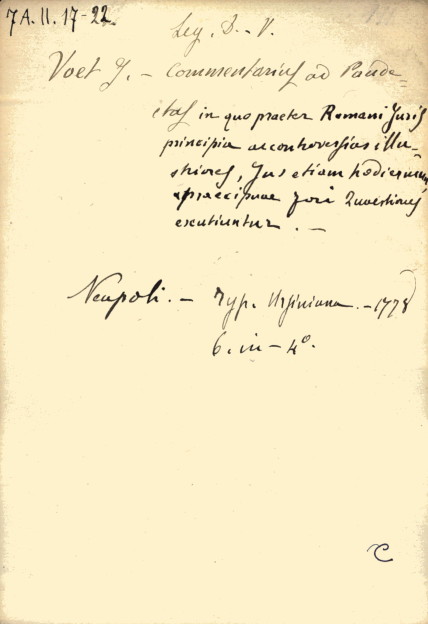 7A.II.17-22
Leg. D. - V.
Voet J. - Commentarius ad Pande=
ctas in quo praeter Romani Juris
principia ac controversias illu-
striores, Jus etiam hodiernum
et praecipuae fori Quaestiones
excutiuntur. -
Neapoli. - Typ. Ursiniana. - 1778
6. in - 4º.
C